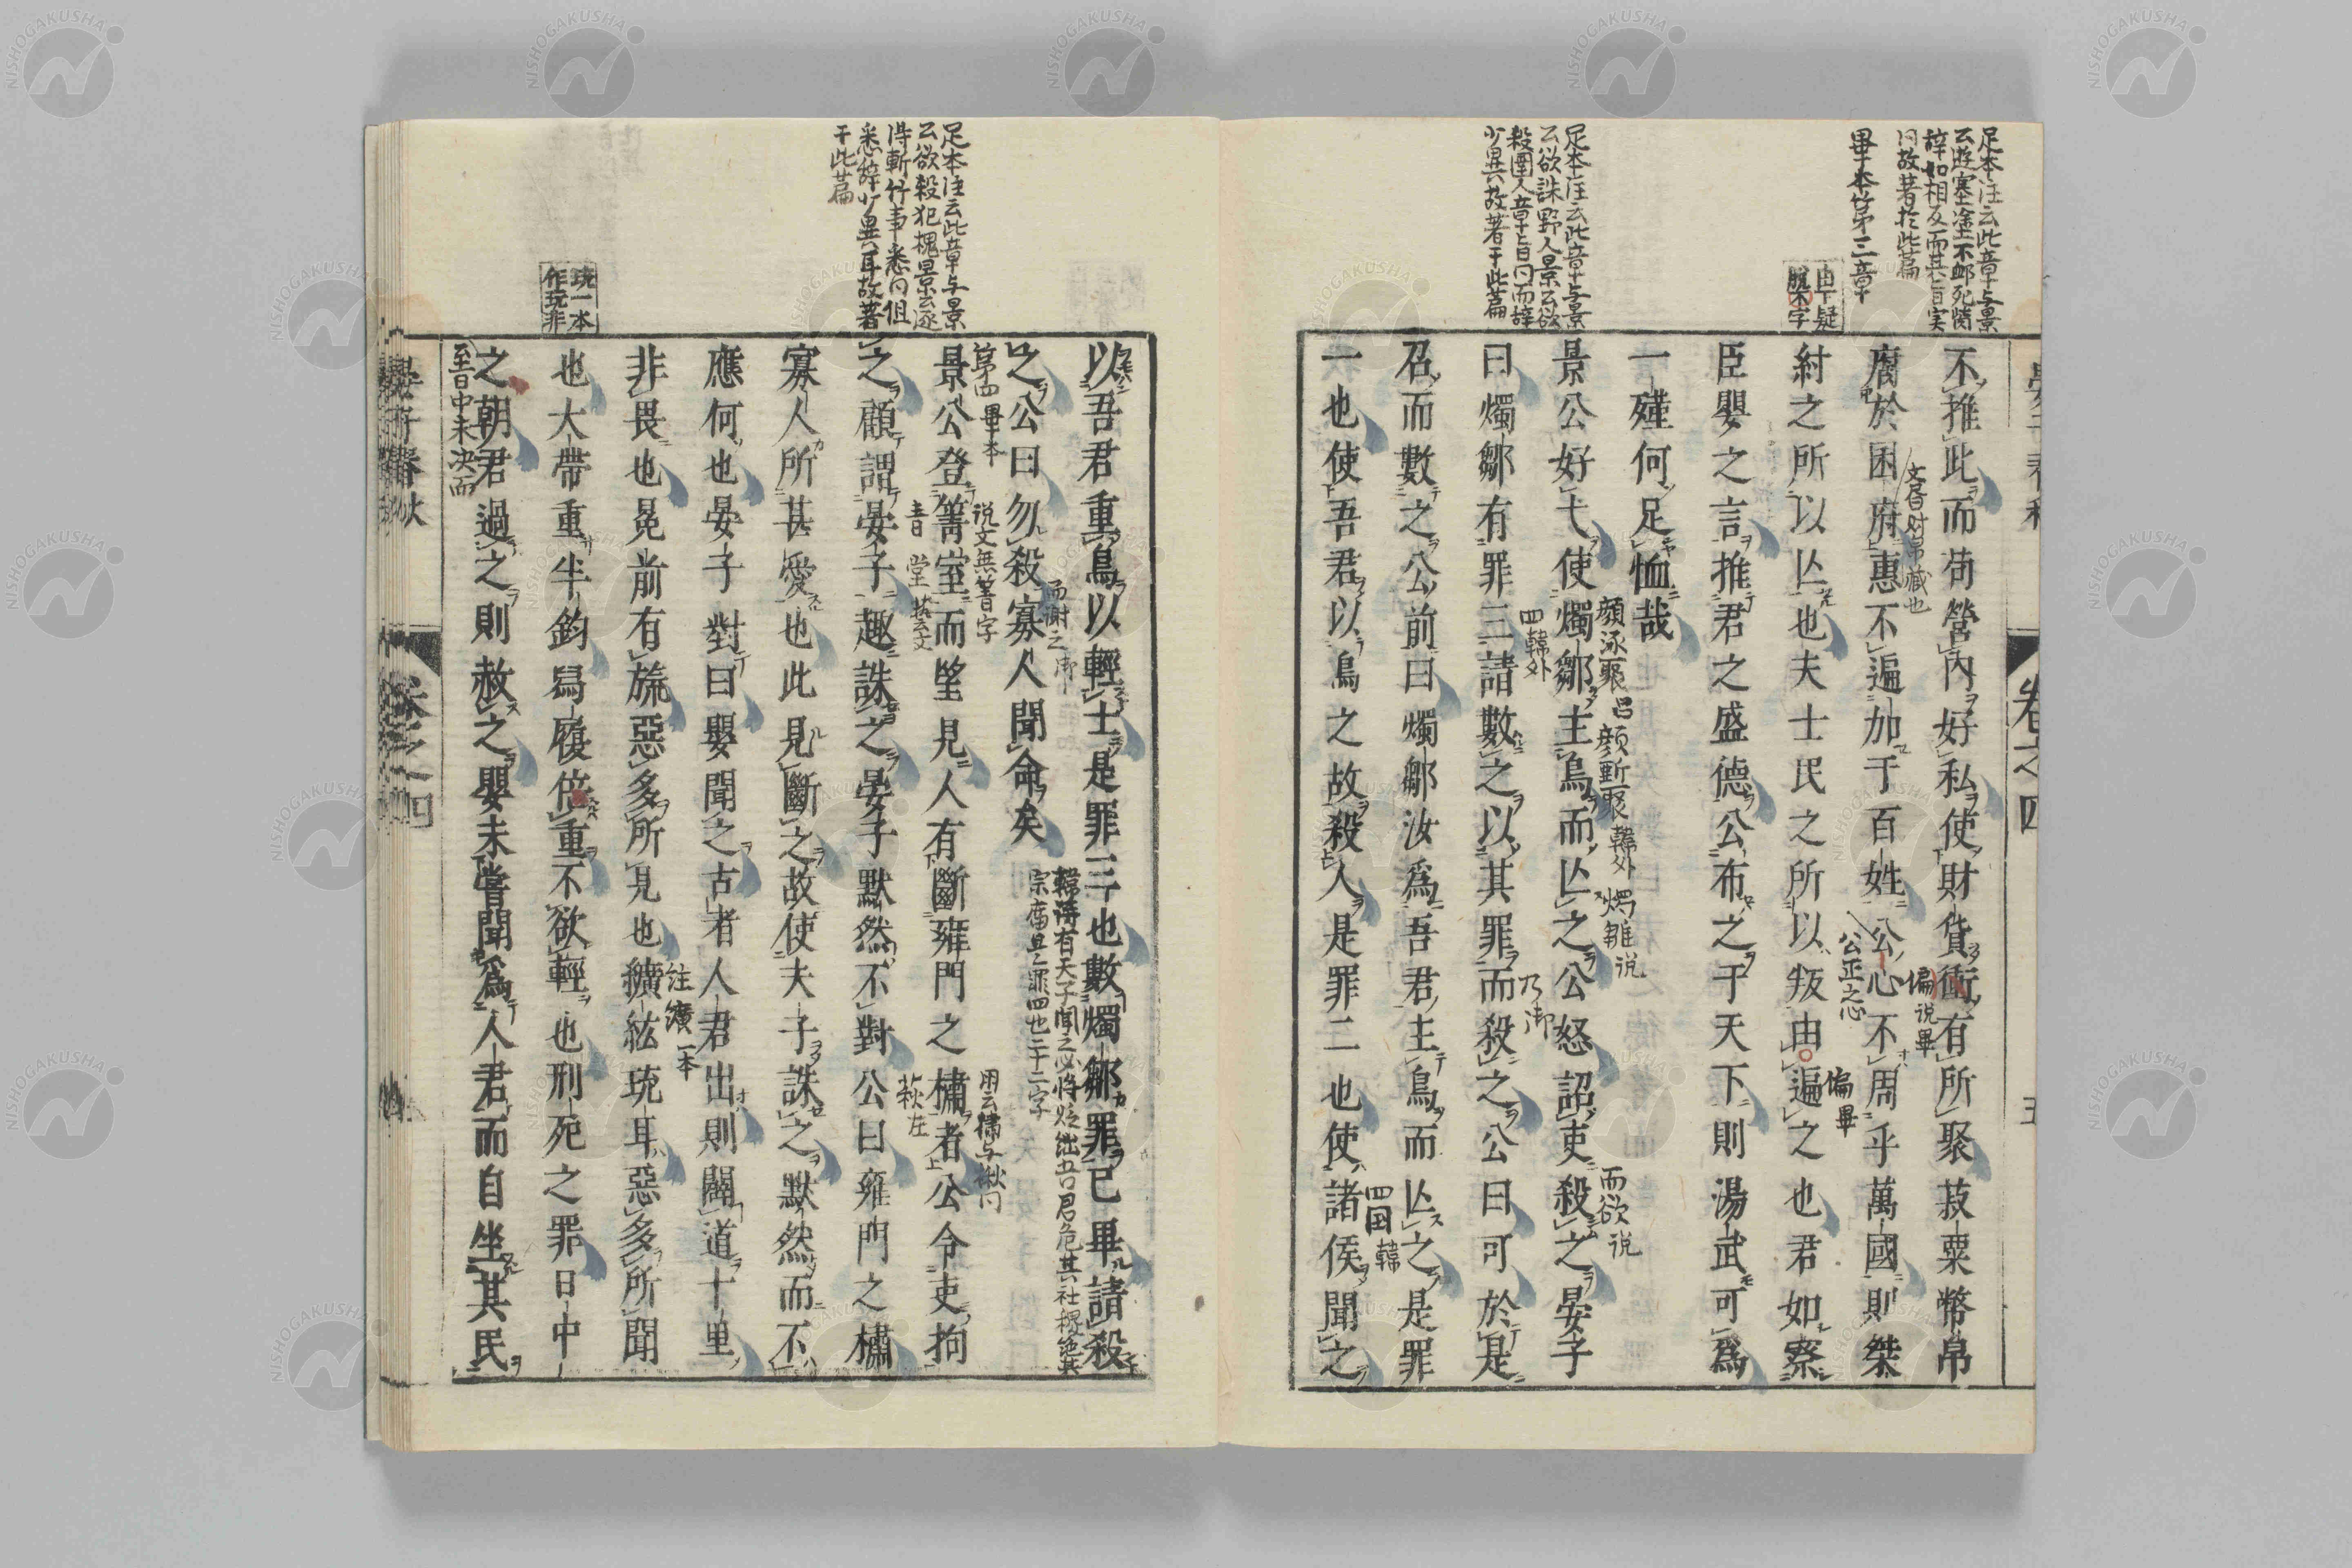 足本注云此章与景
云遊寒塗不卹死胔
辞如相反而其旨実
同故著於此篇
畢本第三章
由下疑
脱不字
不推此而苟營內好私使財貨衝有所聚菽粟幣帛
偏説畢
腐於囷府惠不遍加于百姓公心不周乎萬國則桀
公正之心
偏畢
紂之所以亾也夫士民之所以叛由遍之也君如察
臣嬰之言推君之盛德公布之于天下則湯武可爲
一殣何足恤哉
足本注云此章与景
云欲誅野人景云欲
殺圉人章旨同而辞
少異故著于此篇
顔涿聚 呂 顔斲聚 韓外
説
而欲説
景公好弋使燭鄒主鳥而亾之公怒詔吏殺之晏子
四韓外
乃御
曰燭鄒有罪三請數之以其罪而殺之公曰可於是
召而數之公前曰燭鄒汝爲吾君主鳥而亾之是罪
四国韓
一也使吾君以鳥之故殺人是罪二也使諸侯聞之
晏子春秋
卷之四
五
以吾君重鳥以輕士是罪三也數燭鄒罪已畢請殺
而謝之御
之公曰勿殺寡人聞命矣
韓詩有天子聞之必将貶絀吾君危其社稷絶其
宗庿是罪四也二十二字
足本注云此章与景
云欲殺犯槐景云逐
得斬竹事悉同但
悉辞少異耳故著
于此篇
第四畢本
説文無菁字
用云橚与楸同
景公登箐室而望見人有斷雍門之橚者公令吏拘
青堂藝文
萩左
之顧謂晏子趣誅之晏子默然不對公曰雍門之橚
寡人所甚愛也此見斷之故使夫子誅之默然而不
應何也晏子對曰嬰聞之古者人君出則闢道十里
注纊一本
非畏也冕前有旒惡多所見也纊紘珫耳惡多所聞
珫一本
作玩非
也大帶重半鈞舄履倍重不欲輕也刑死之罪日中
之朝君過之則赦之嬰未嘗聞爲人君而自坐其民
至日中未決而
晏子春秋
卷之四
NISHOGAKUSHA